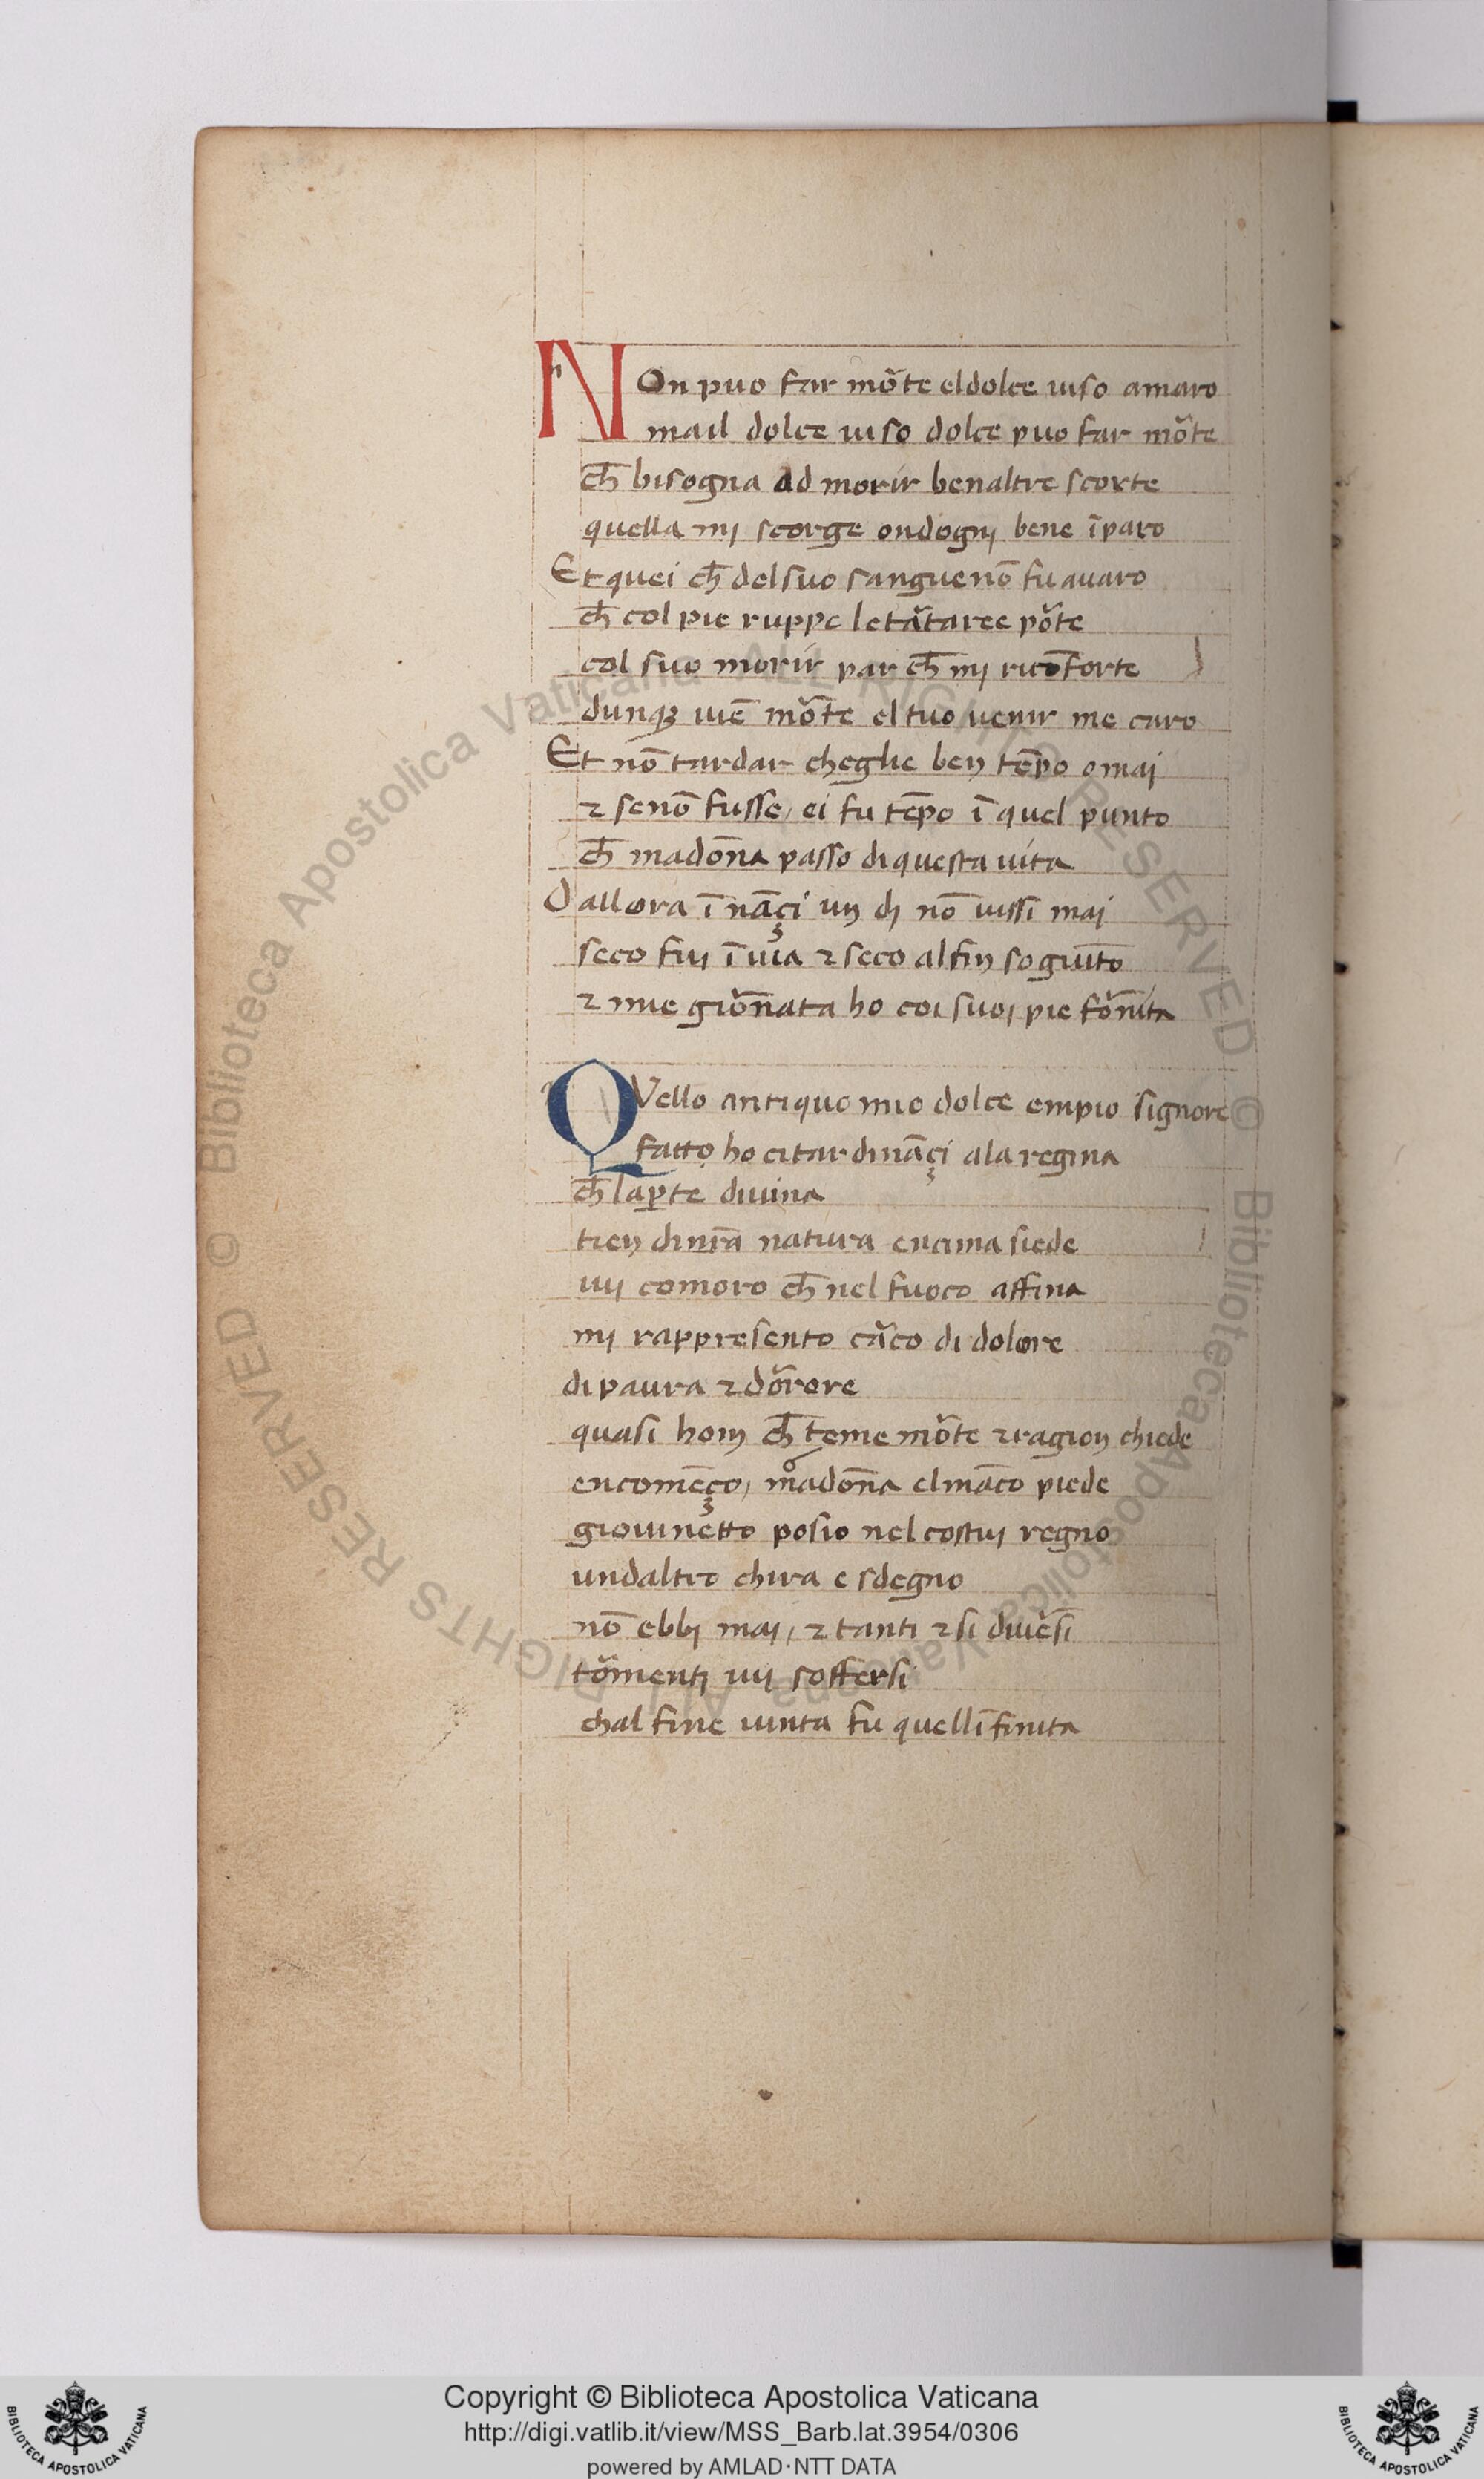 NOn puo far mo᷑te eldolce uiso amaro
mail dolce uiso dolce puo far mo᷑te
ch̅ bisogna ad morir benaltre scorte
quella mj scorge ondognj bene ı̅paro
Et quei ch̅ delsuo sangue no̅ fu auaro
ch̅ col pie ruppe leta᷑taree po᷑te
col suo morir par ch̅ mj riconforte
dunqꝫ uie̅ mo᷑te el tuo uenir me caro
Et no̅ tardar cheglie ben te̅po omaj
⁊ seno̅ fusse, ei fu te̅po ı̅ quel punto
ch̅ mado̅na passo diquesta uita
Dallora ı̅ na̅çi un dj no̅ uissi maj
seco fuj ı̅ uia ⁊ seco alfin so giu̅to
⁊ mie gio᷑nata ho coi suoj pie fo᷑nita
QVello antiquo mio dolce empio signore
fatto ho citar dina̅çi ala regina
ch̅ laꝑte diuina
tien dinr̅a natura encima siede
iuj comoro ch̅ nel fuoco affina
mj rappresento ca᷑co di dolore
di paura ⁊ do᷑rore
quasi hom ch̅ teme mo᷑te ⁊ragion chiede
encome̅ço, madon̅a elma̅co piede
giouinetto posio nel costuj regno
undaltro chira e sdegno
no̅ ebbj maj, ⁊ tanti ⁊ si diue᷑si
to᷑mentj iuj soffersi
chal fine uinta fu quellı̅finita
Copyright © Biblioteca Apostolica Vaticana
http://digi.vatlib.it/view/MSS_Barb.lat.3954/0306
powered by AMLAD·NTT DATA
BIBLIOTECA APOSTOLICA VATICANA
BIBLIOTECA APOSTOLICA VATICANA
Biblioteca Apostolica Vaticana ALL RIGHTS RESERVED ©
Biblioteca Apostolica Vaticana ALL RIGHTS RESERVED ©